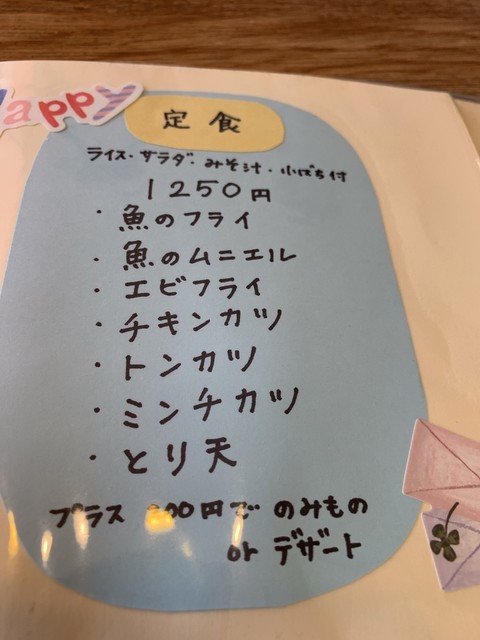 Happy
定食
ライス・サラダ・みそ汁・小ばち付
1250円
・魚のフライ
・魚のムニエル
・エビフライ
・チキンカツ
・トンカツ
・ミンチカツ
・とり天
プラス 00円で のみもの
or デザート